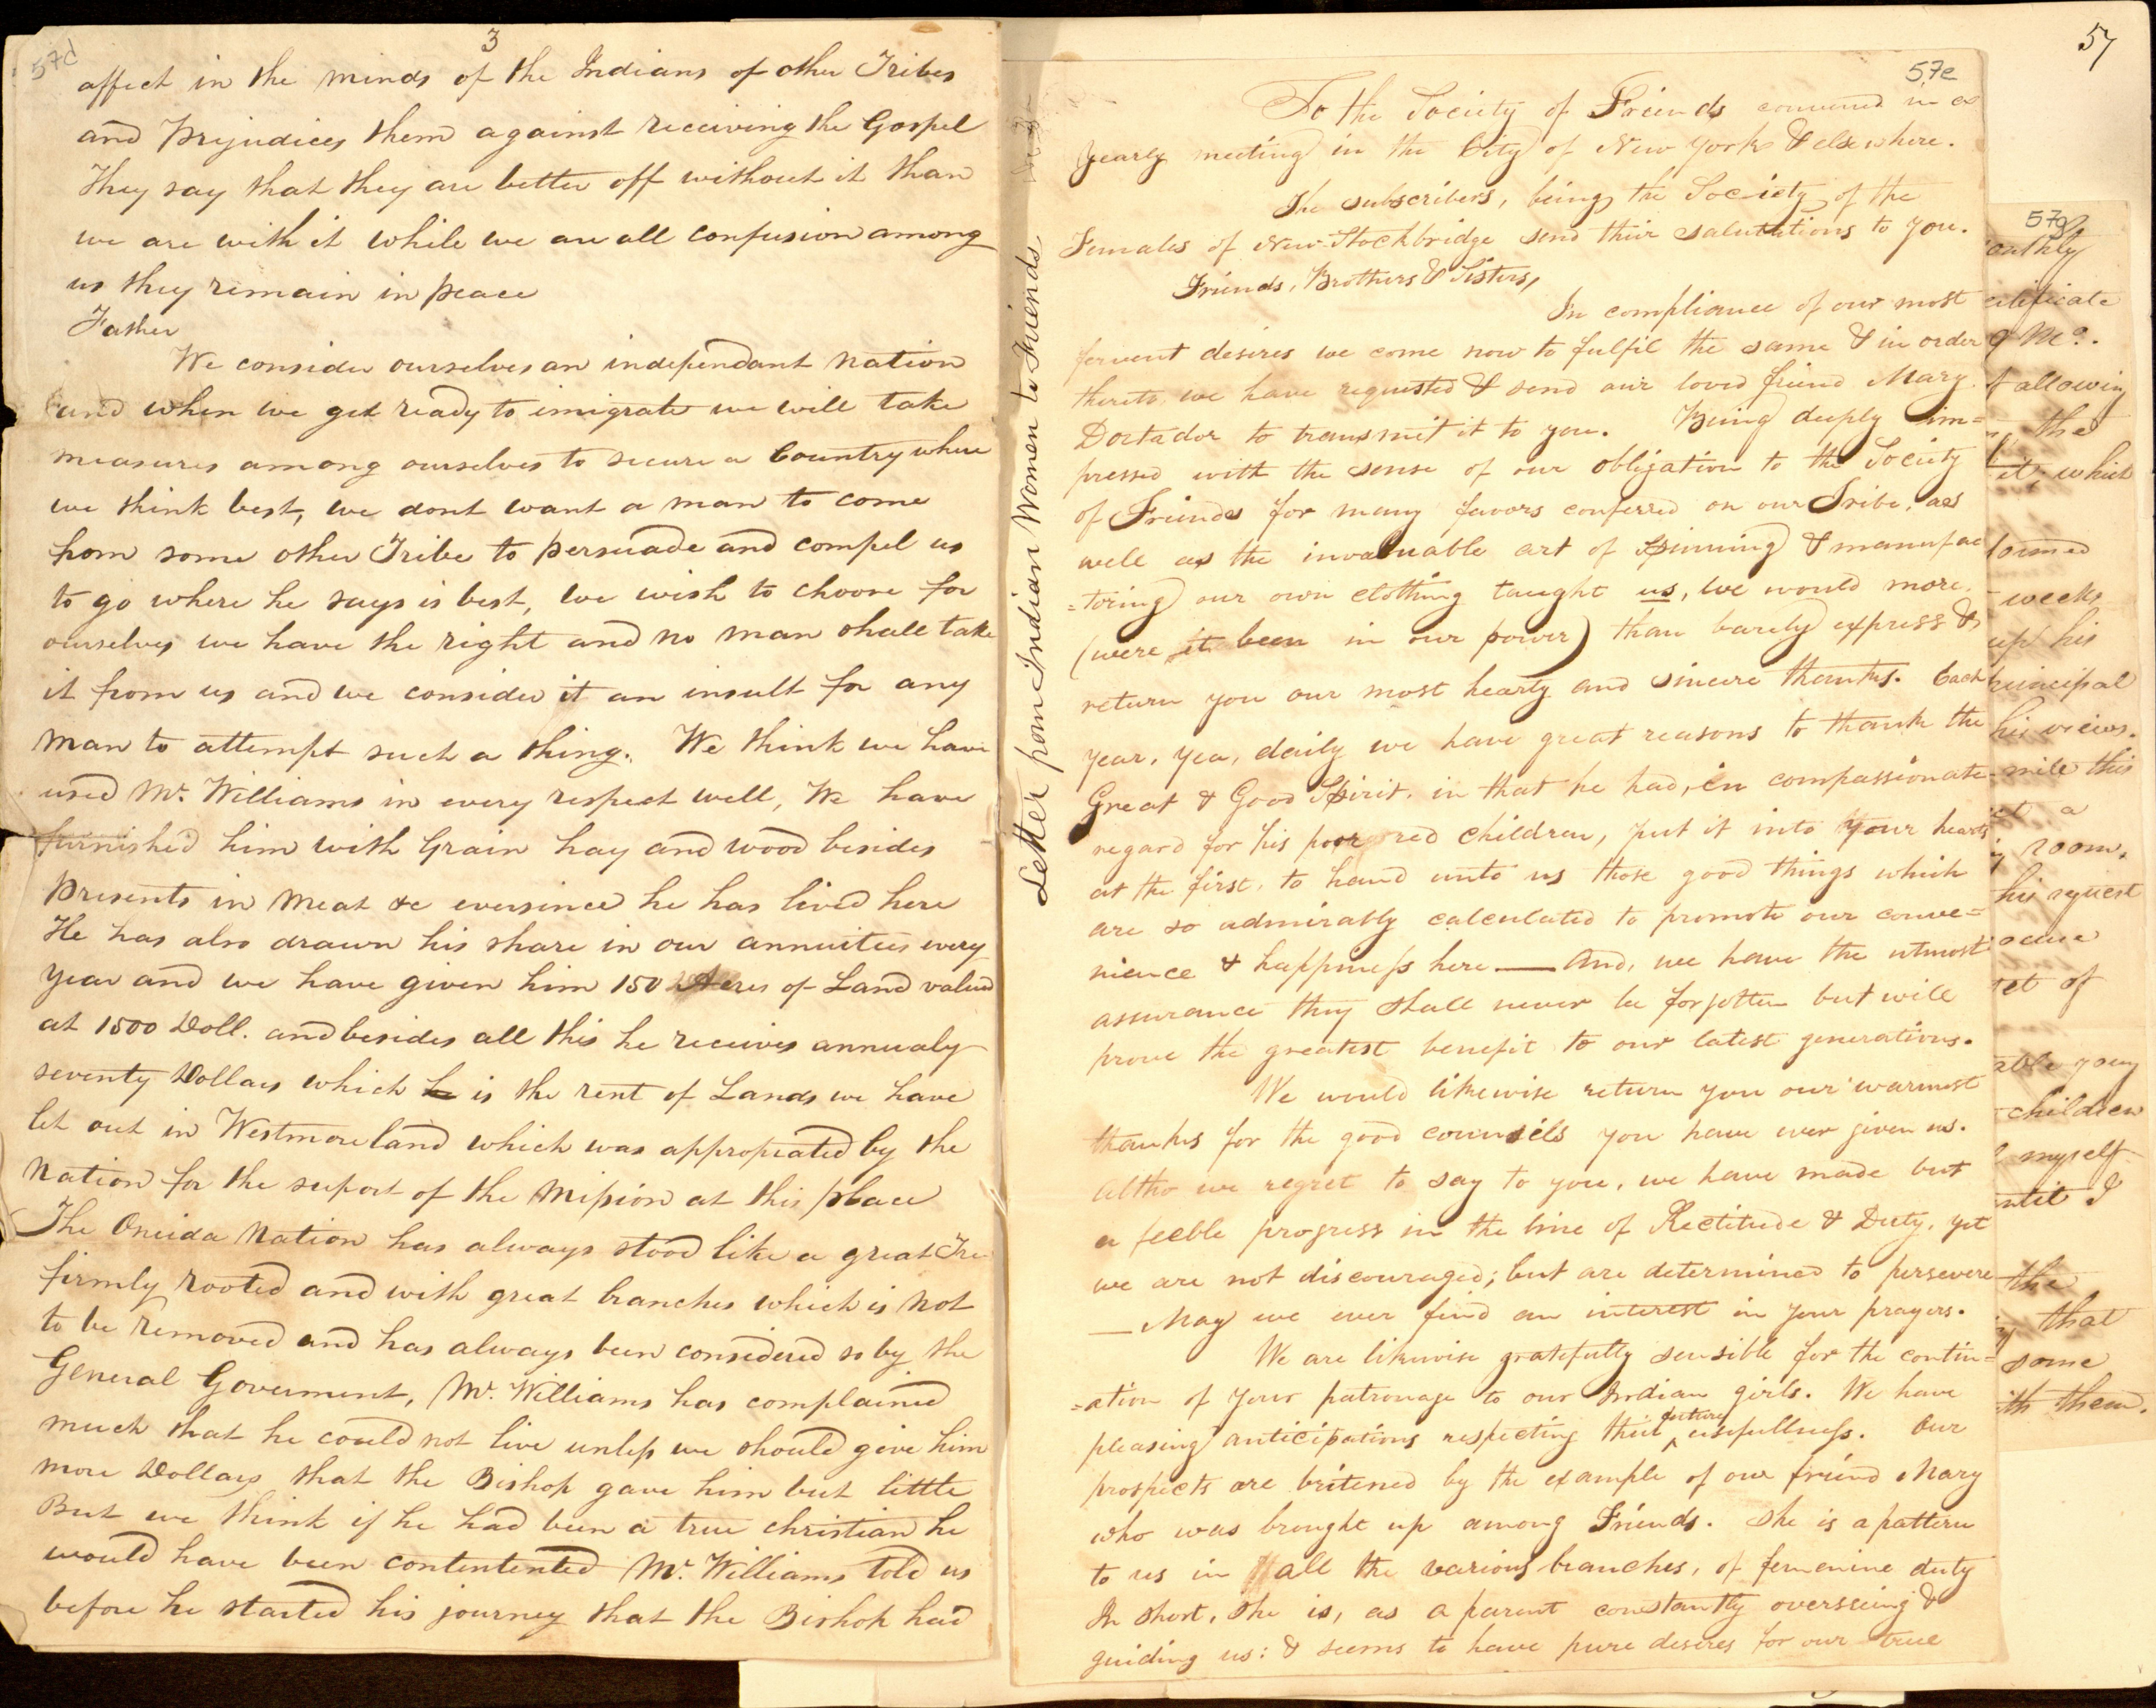 57d
3
affect in the minds of the Indians of other Tribes
and Prejudices them against receiving the Gospel
They say that they are better off without it than
we are with it while we are all confusion among
us they remain in peace
Father
We consider ourselves an independant Nation
and when we get ready to imigrate we will take
measures among ourselves to secure a Country where
we think best, we dont want a man to come
from some other Tribe to persuade and compel us
to go where he says is best, we wish to choose for
ourselves we have the right and no man shall take
it from us and we consider it an insult for any
man to attempt such a thing. We think we have
used Mr. Williams in every respect well, We have
furnished him with Grain hay and wood besides
Presents in Meat &c eversince he has lived here
He has also drawn his share in our annuities every
year and we have given him 150 Acres of Land valued
at 1500 Doll. and besides all this he receives annualy
seventy Dollars which he is the rent of Lands we have
let out in Westmoreland which was appropeated by the
Nation for the suport of the Mission at this place
The Oneida Nation has always stood like a great Tre
firmly rooted and with great branches which is not
to be removed and has always been considered so by the
General Goverment, Mr. Williams has complained
much that he could not live unless we should give him
more Dollars that the Bishop gave him but little
But we think if he had been a true christian he
would have been contentented Mr. Williams told us
before he started his journey that the Bishop had
Letter from Indian Women to Friends
57
57e
To the Society of Friends convened in a
yearly meeting in the City of New York & elsewhere.
The subscribers, being the Society of the
Females of New-Stockbridge send their salutations to you.
Friends, Brothers & Sisters,
In compliance of our most
fervent desires we come now to fulfil the same & in order
thereto we have requested & send our loved friend Mary
Doctador to transmit it to you. Being deeply im=
pressed with the sense of our obligation to the Society
of Friends for many favors conferred on our Tribe, as
well as the invaluable art of spinning & manufac
=toring our own clothing taught us, we would more
(were it been in our power) than barely express &
return you our most hearty and sincere thanks. Each
year, yea, daily we have great reasons to thank the
Great & Good Spirit, in that he had, in compassionate
regard for his poor red children, put it into your hearts
at the first, to hand unto us those good things which
are so admirably calculated to promote our conve=
nience & happiness here — And, we have the utmost
assurance they shall never be forgotten but will
prove the greatest benefit to our latest generations.
We would likewise return you our warmest
thanks for the good counsels you have ever given us.
Altho we regret to say to you, we have made but
a feeble progress in the line of Rectitude & Duty, yet
we are not discouraged; but are determined to persevere
— May we ever find an interest in your prayers.
We are likewise gratefully sensible for the contin=
=ation of your patronage to our Indian girls. We have
pleasing anticipations respecting their future usefullness. Our
prospects are britened by the example of our friend Mary
who was brought up among Friends. She is a pattern
to us in all the various branches, of femenine duty
In short, she is, as a parent constantly overseeing &
guiding us: & seems to have pure desires for our true
57g
earthly
rtificate
g Me.
f allowing
the
it, which
formed
weeks
up his
principal
his views.
mile this
a
room,
his request
et of
able going
children
myself
until I
the
that
some
ith them.